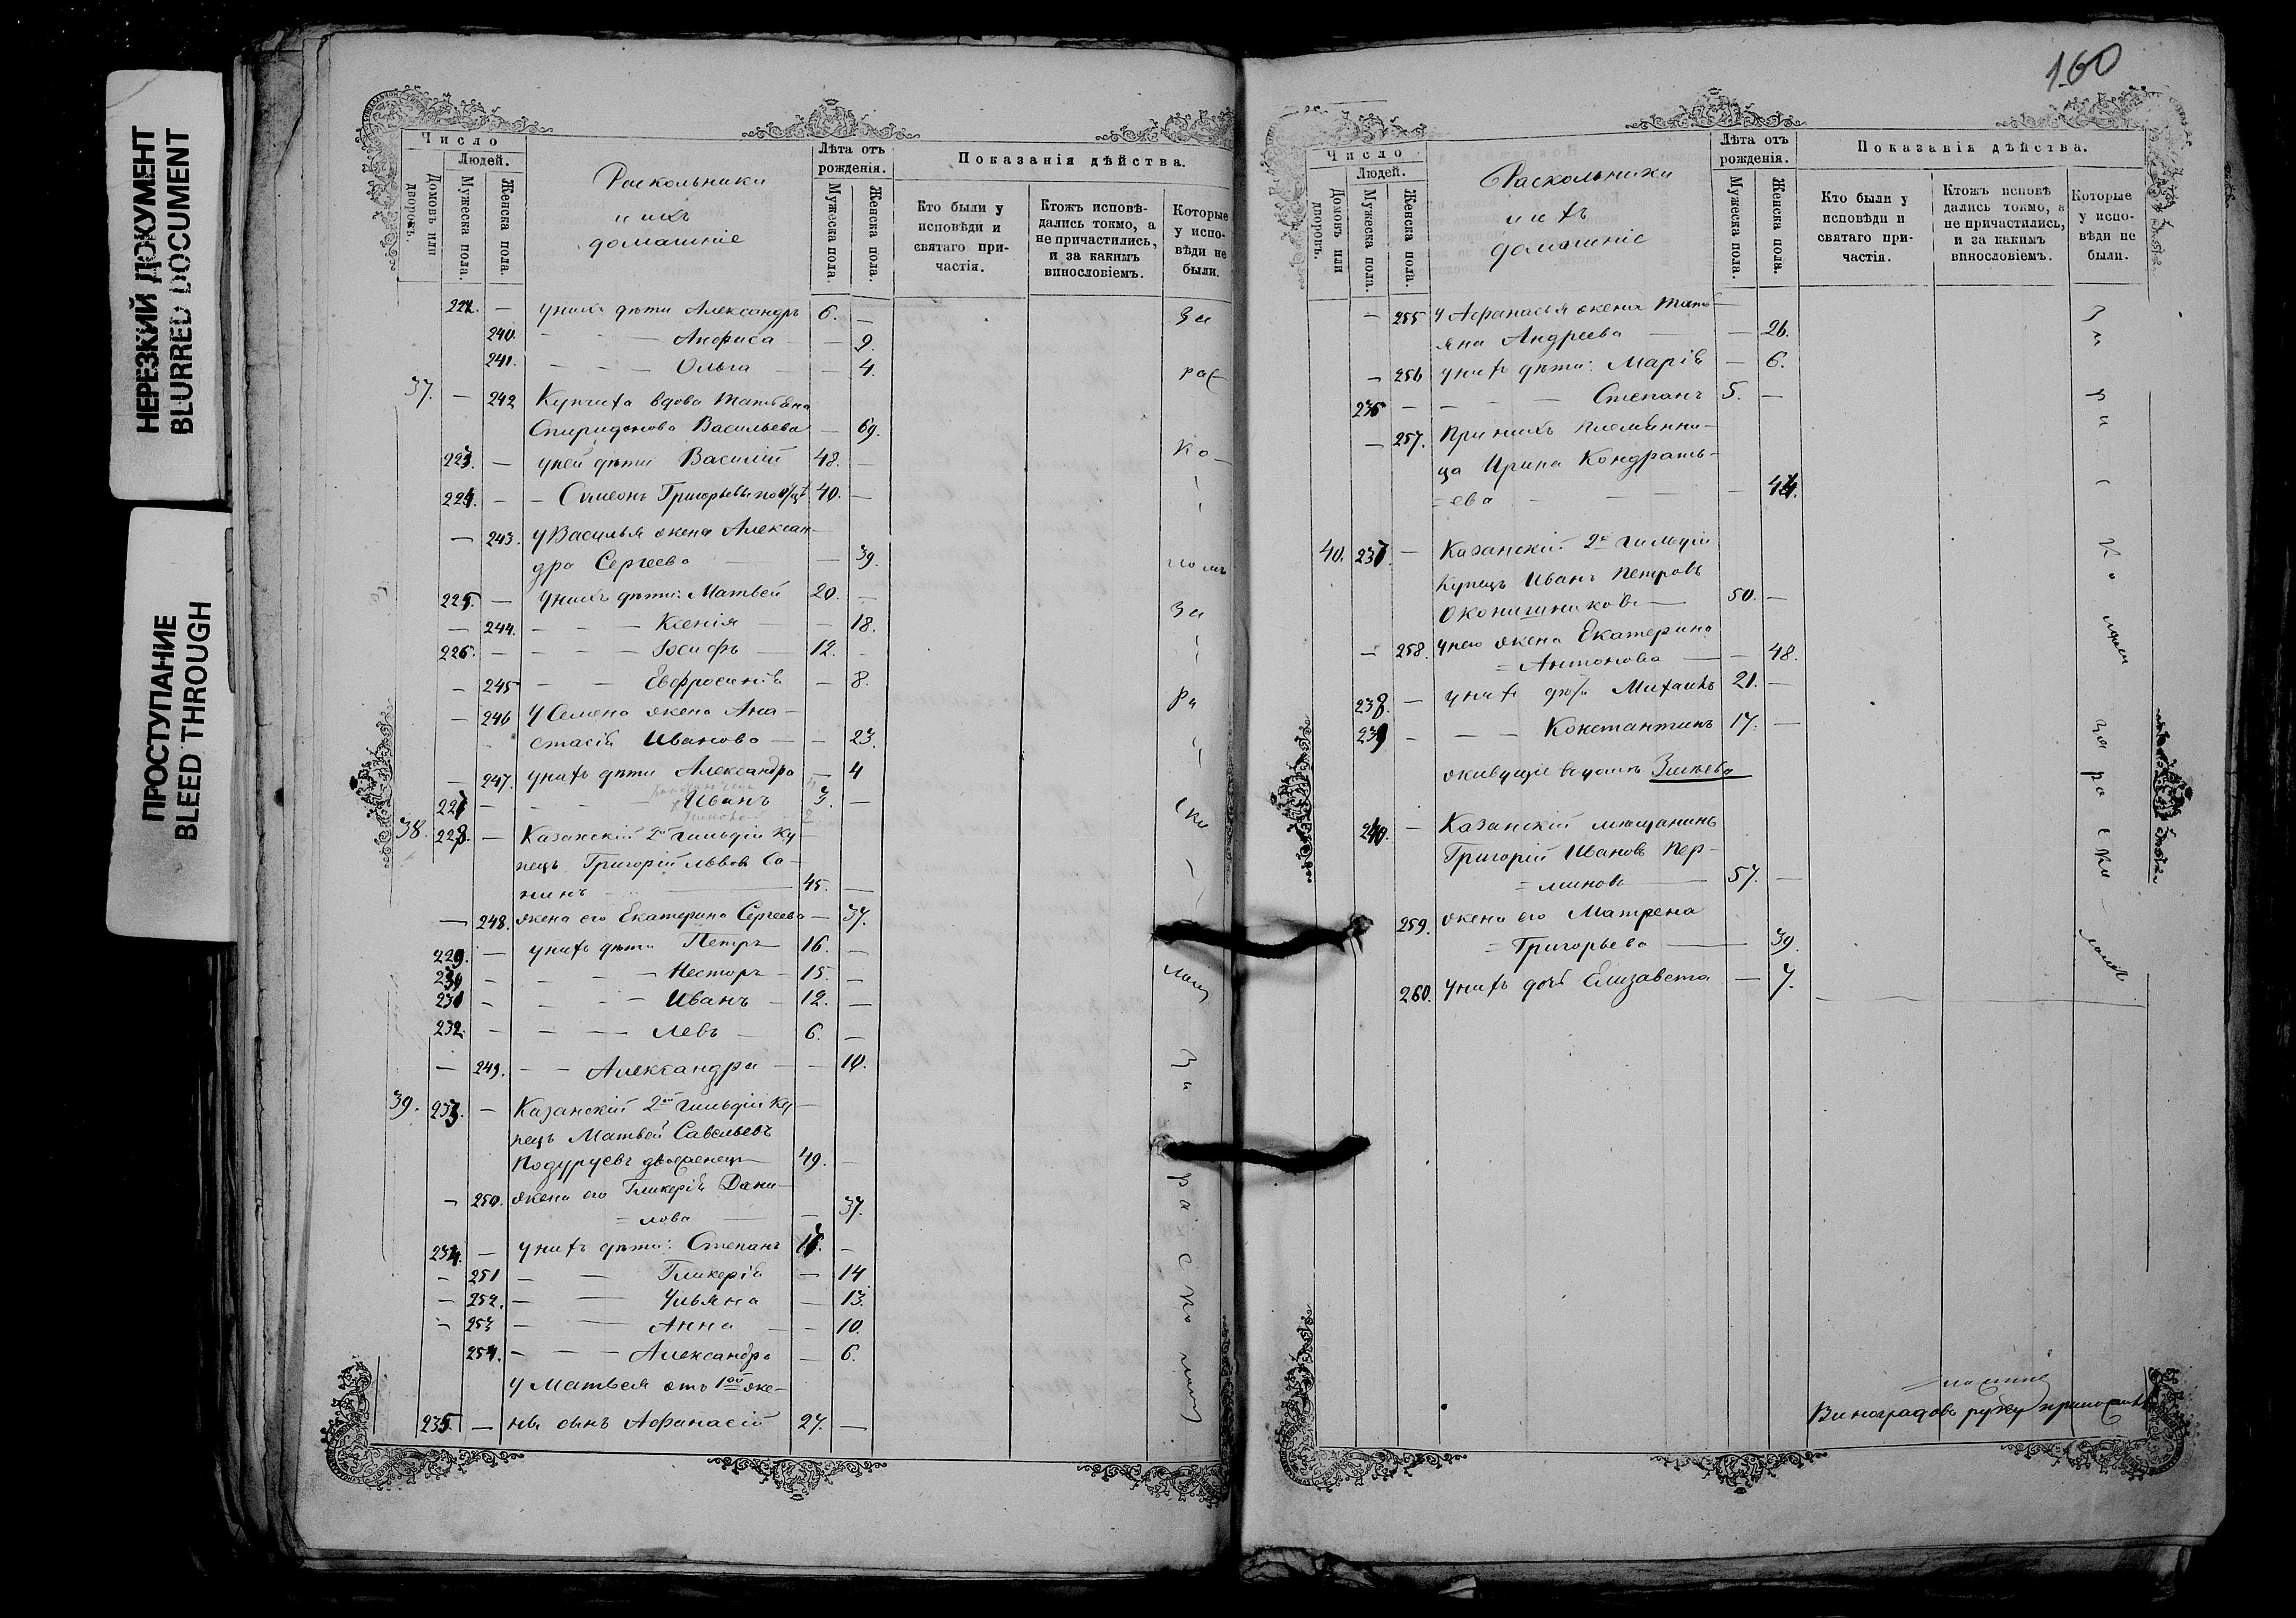 НЕРЕЗКИЙ ДОКУМЕНТ
BLURRED DOCUMENT
ПРОСТУПАНИЕ
BLEED THROUGH
Число
Людей.
Домовъ или дворовъ.
Мужеска пола.
Женска пола.
Раскольники
и ихъ
домашніе
Лѣта отъ рожденія.
Мужеска пола
Женска пола.
Показанія дѣйства.
Кто были у исповѣди и святаго причастія.
Ктожъ исповѣдались токмо, а не причастились, и за какимъ винословіемъ.
Которые у исповѣди не были.
222. — у нихъ дѣти Александръ 6. —
240. — Анфиса — 9.
241. — Ольга — 4.
37. — 242 Купчиха вдова Татьяна
Спиридонова Васильева — 69.
223. — у ней дѣти Василій 48. —
224. — Симеонъ Григорьевы 40. —
— 243. у Василья жена Александра
Сергеева — 39.
225. — у нихъ дѣти: Матвей 20. —
— 244. — Ксенія — 18.
226. — Іосифъ — 12. —
— 245 — Евфросинія — 8.
— 246 у Семена жена Ана-
стасія Иванова — 23.
— 247. у нихъ дѣти Александра — 4
227 — Иванъ 3. —
38. 228. — Казанскій 2й гильдіи ку-
пецъ Григорій Львовъ Са-
нинъ — 45. —
— 248. жена его Екатерина Сергеева — 37.
229. — у нихъ дѣти Петръ 16. —
230 — Несторъ — 15. —
231 — Иванъ — 12. —
232. — Левъ — 6. —
— 249. — Александра — 10.
39. 233. — Казанскій 2ой гильдіи ку-
пецъ Матвей Савельевъ
Подуруевъ двоеженецъ 49. —
— 250. жена его Гликерія Дани-
= лова — 37.
234. — у нихъ дѣти: Степанъ —
— 251 — Гликерія — 14
— 252. — Ульяна — 13.
— 253 — Анна — 10.
254. — Александра — 6.
у Матвея отъ 1ой же-
235. — ны сынъ Афанасій 27. —
За
рас
ко
ломъ
За
ра
ско
ломъ
За
ра
с
ко
ломъ
160
Число
Людей.
Домовъ или дворовъ.
Мужеска пола.
Женска пола.
Раскольники
и ихъ
домашніе
Лѣта отъ рожденія.
Мужеска пола.
Женска пола.
Показанія дѣйства.
Кто были у исповѣди и святаго причастія.
Ктожъ исповѣ дались токмо, а не причастились, и за какимъ винословіемъ.
Которые у исповѣди не были.
— 255 у Афанасья жена Тать-
яна Андреева — 26.
— 256 у нихъ дѣти: Марія — 6.
236 — Степанъ 5. —
— 257. При нихъ племянни-
ца Ирина Кондрать-
= ева — 44.
40. 237. — Казанскій 2й гильдіи
купецъ Иванъ Петровъ
Оконишниковъ — 50. —
— 258. у него жена Екатерина
= Антонова — 48.
238. — у нихъ дѣти Михаилъ 21. —
239 — Константинъ 17. —
живущіе въ домѣ
240. — Казанскій мещанинъ
Григорій Ивановъ Пер-
= миновъ — 57. —
259. жена его Матрена
= Григорьева — 39.
260. у нихъ дочь Елизавета — 7.
За
ра
с
ко
ломъ
за
ра
с
ко
ломъ
Виноградовъ руку приложилъ